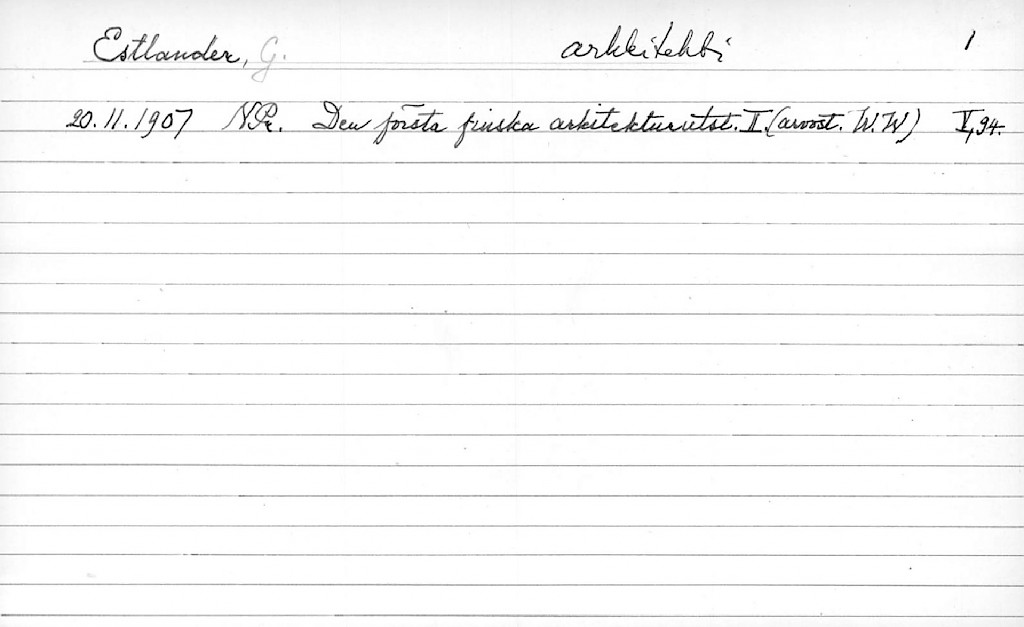 Estlander, G. arkkitehti 1
20.11.1907 N.Pr. Den första finska arkitekturutst. II. (arvost. W.W) V,94.